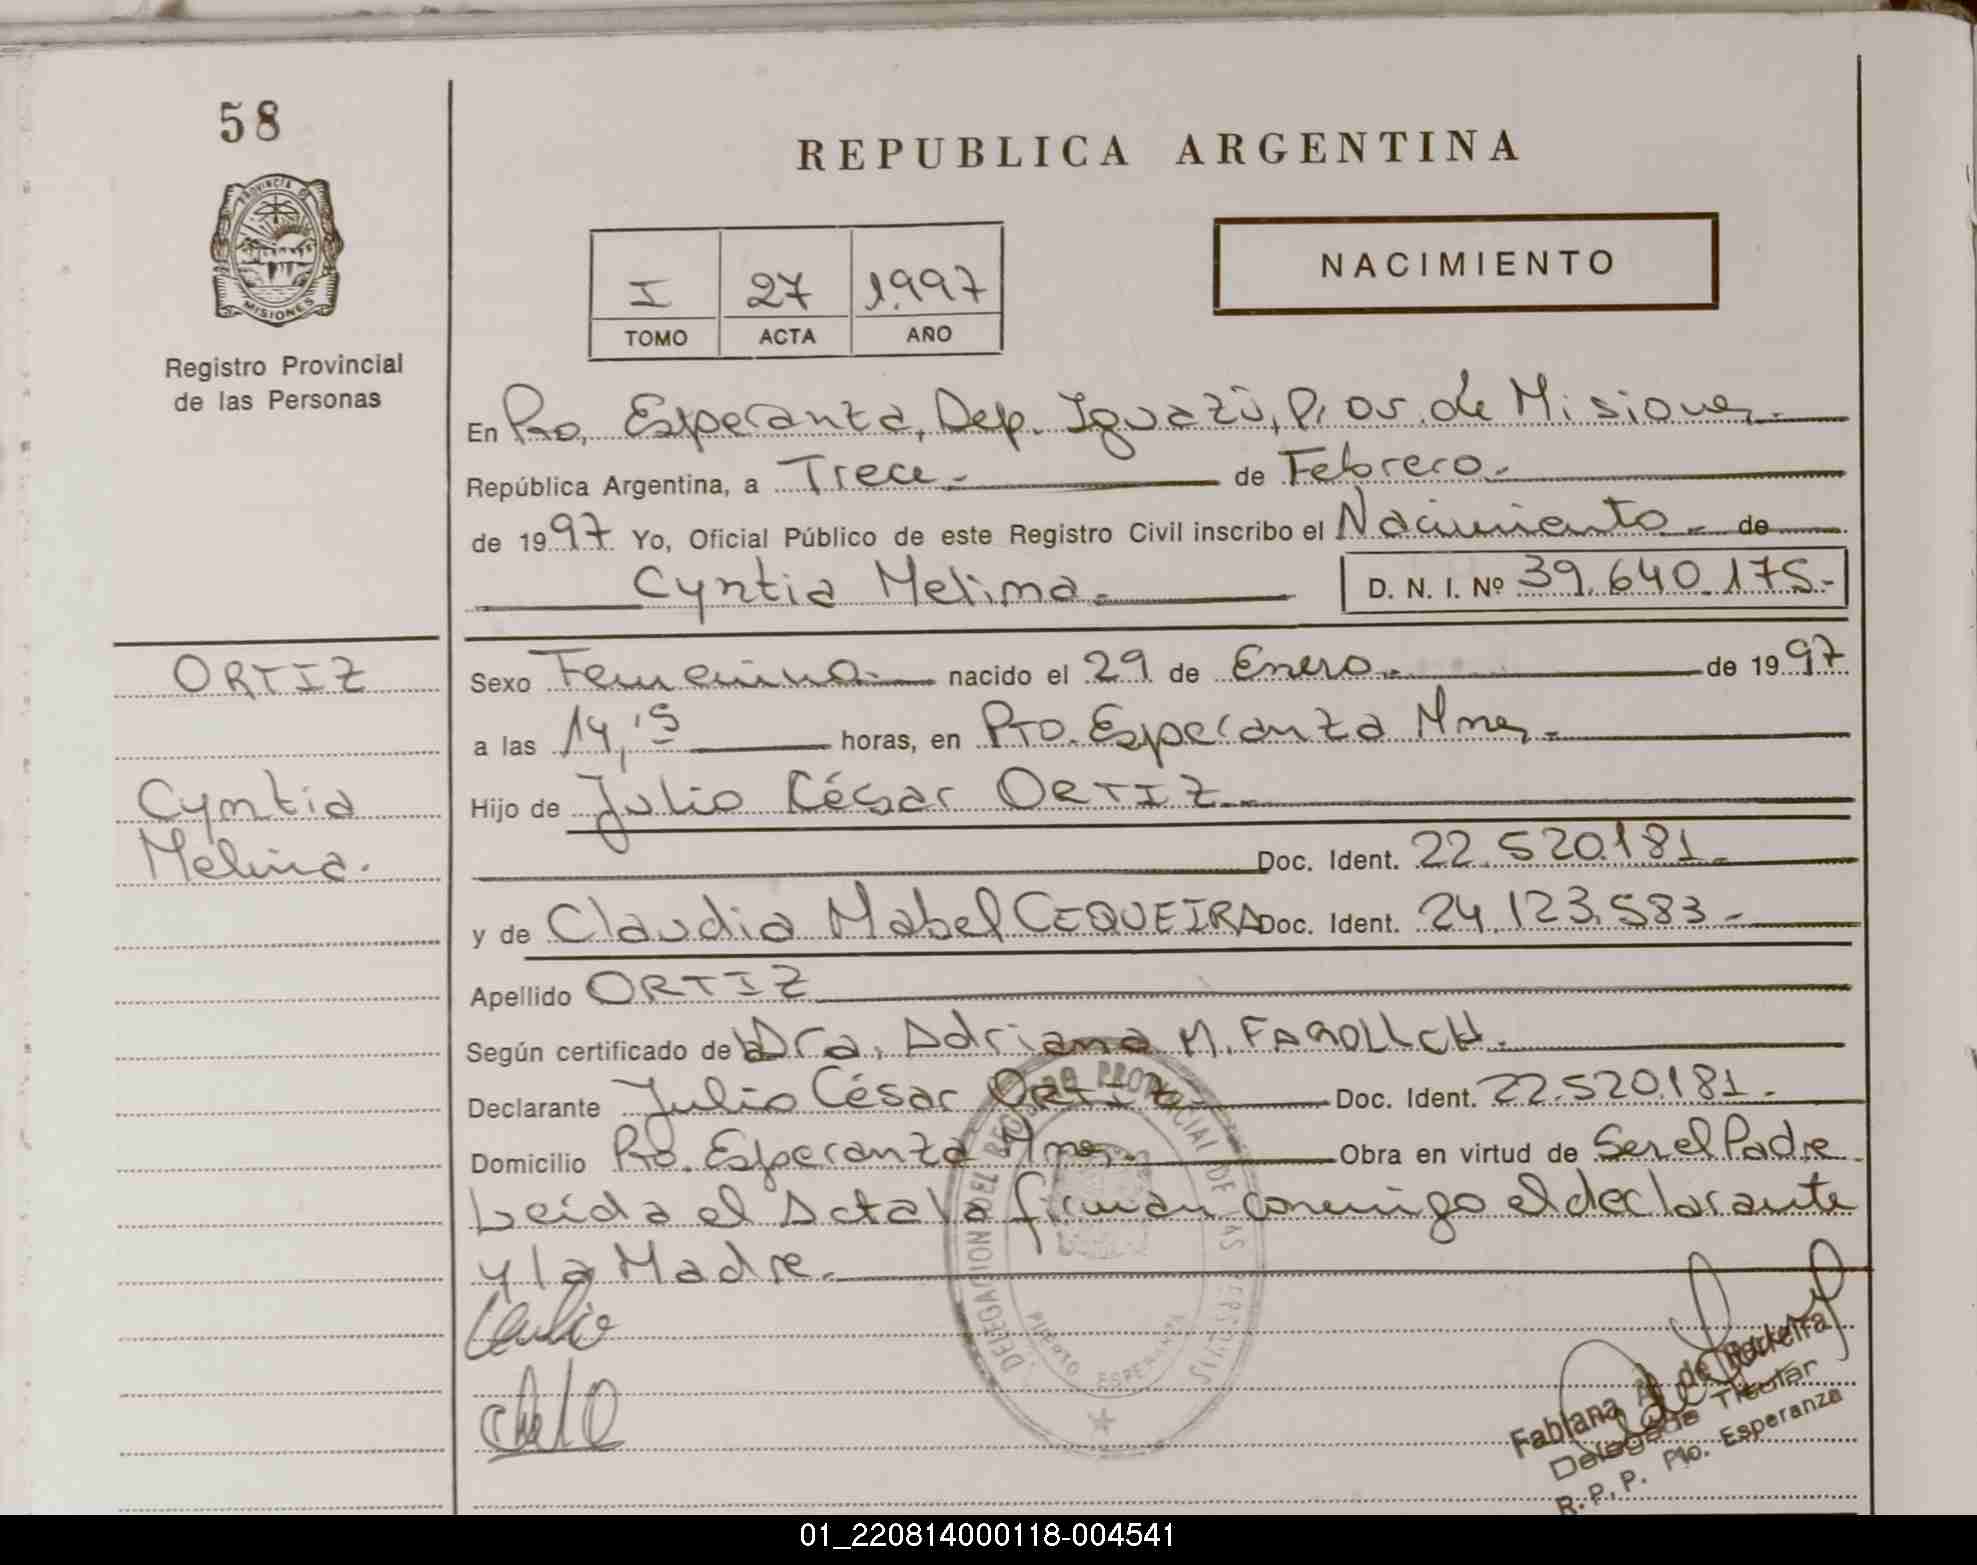 58
REPUBLICA ARGENTINA
PROVINCIA DE
MISIONES
Registro Provincial
de las Personas
I 27 1.997
TOMO ACTA AÑO
NACIMIENTO
En Pto. Esperanza, Dep. Iguazú, Prov. de Misiones.-
República Argentina, a Trece.- de Febrero.-
de 1997 Yo, Oficial Público de este Registro Civil inscribo el Nacimiento.- de
Cyntia Melina.- D. N. I. Nº 39.640.175.-
ORTIZ
Cyntia
Melina.
Sexo Femenino.- nacido el 29 de Enero.- de 1997
a las 14,15 horas, en Pto. Esperanza Mnes.-
Hijo de Julio César ORTIZ.-
Doc. Ident. 22.520.181.-
y de Claudia Mabel CEQUEIRA Doc. Ident. 24.123.583.-
Apellido ORTIZ
Según certificado de la Dra. Adriana M.
Declarante Julio César ORTIZ Doc. Ident. 22.520.181.-
Domicilio Pto. Esperanza Mnes.- Obra en virtud de Ser el Padre
Leída el Acta la firman conmigo el declarante
y la Madre.-
DELEGACION DEL REGISTRO PROVINCIAL DE LAS PERSONAS
PUERTO ESPERANZA
Fabiana A. de
Delegada Titular
R.P.P. Pto. Esperanza
01_220814000118-004541